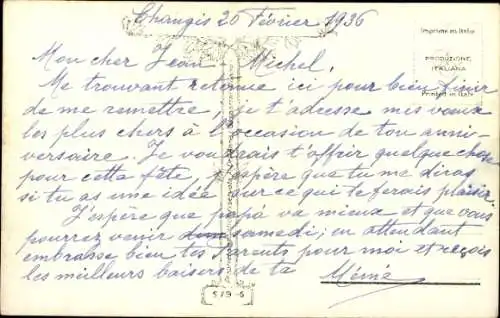 Changis 20 Février 1936
Imprimé en Italie
PRODUZIONE
ITALIANA
Printed in Italy
Mon cher Jean Michel,
Me trouvant retenue ici pour bien finir
de me remettre, je t'adresse mes vœux
les plus chers à l'occasion de ton anni-
versaire. Je voudrais t'offrir quelque chose
pour cette fête, j'espère que tu me diras
si tu as une idée sur ce qui te ferais plaisir.
J'espère que papa va mieux et que vous
pourrez venir samedi; en attendant
embrasse bien tes Parents pour moi et reçois
les meilleurs baisers de ta Mémé
579-6